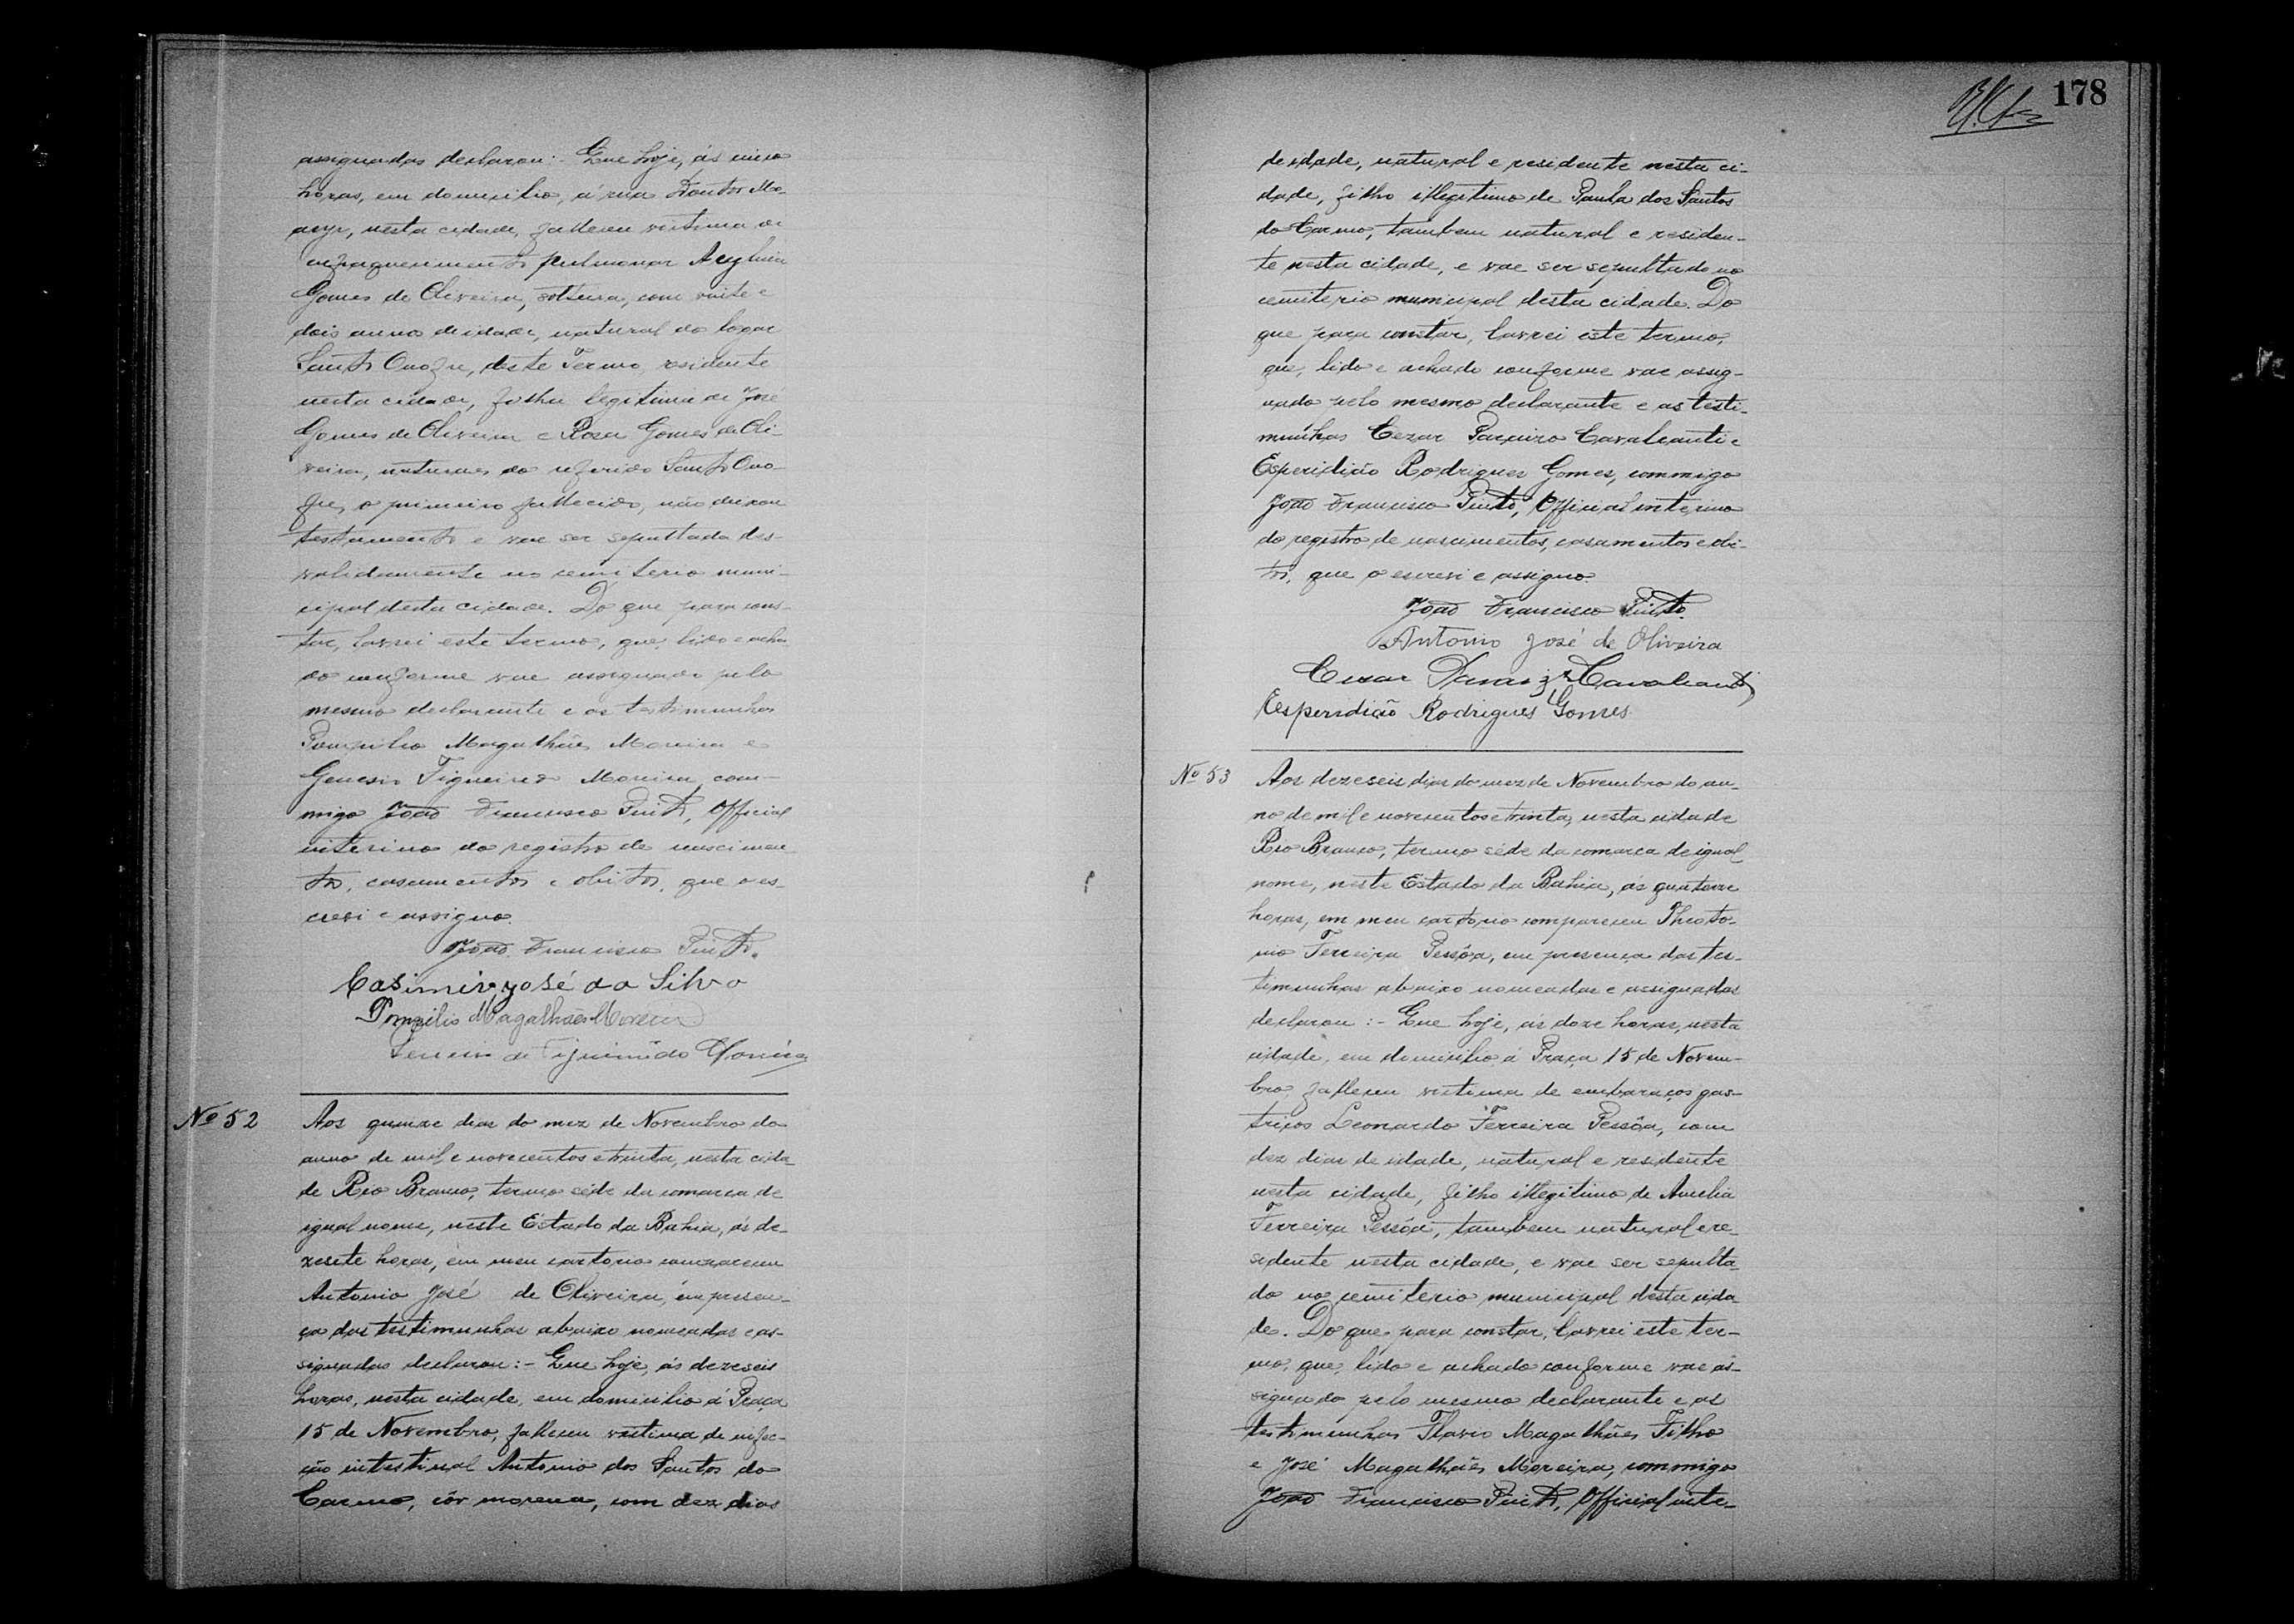 assignadas declarou:- Que hoje, ás cinco
horas, em domicilio, á rua Doutor Mo-
acyr, nesta cidade, falleceu victima de
enfraquecimento pulmonar
Gomes de Oliveira, solteira, com vinte e
dois annos de idade, natural do logar
Santo Onofre, deste Termo, residente
nesta cidade, filha legitima de José
Gomes de Oliveira e Rosa Gomes de Oli-
veira, naturaes do referido Santo Ono-
fre, o primeiro fallecido, não deixou
testamento e vae ser sepultada des-
validamente no cemiterio muni-
cipal desta cidade. Do que para cons-
tar, lavrei este termo, que, lido e acha-
do conforme vae assignado pelo
mesmo declarante e as testimunhas
Pompilio Magalhães Moreira e
Genesio Figueiredo Moreira, com-
migo João Francisco Pinto, Official
interino do registro de nascimen
tos, casamentos e obitos, que o es-
crevi e assigno.
João Francisco Pinto.
Casimiro José da Silva
Pompilio Magalhães Moreira
de Figueirêdo Moreira
Nº 52
Aos quinze dias do mez de Novembro do
anno de mil e novecentos e trinta, nesta cida-
de Rio Branco, termo séde da comarca de
igual nome, neste Estado da Bahia, ás de-
zesete horas, em meu cartorio compareceu
Antonio José de Oliveira, em presen-
ça das testimunhas abaixo nomeadas e as-
signadas declarou:- Que hoje, ás dezeseis
horas, nesta cidade, em domicilio á Praça
15 de Novembro, falleceu victima de infec-
ção intestinal Antonio dos Santos do
Carmo, côr morena, com dez dias
178
de idade, natural e residente nesta ci-
dade, filho illegitimo de Paula dos Santos
do Carmo, tambem natural e residen-
te nesta cidade, e vae ser sepultado no
cemiterio municipal desta cidade. Do
que para constar, lavrei este termo,
que, lido e achado conforme vae assig-
nado pelo mesmo declarante e as testi-
munhas Cezar Cavalcanti e
Esperidião Rodrigues Gomes, commigo
João Francisco Pinto, Official interino
do registro de nascimentos, casamentos e obi-
tos, que o escrevi e assigno.
João Francisco Pinto.
Antonio José de Oliveira
Cesar Cavalcanti
Esperidião Rodrigues Gomes
Nº 53
Aos dezeseis dias do mez de Novembro do an-
no de mil e novecentos e trinta, nesta cidade
Rio Branco, termo séde da comarca de igual
nome, neste Estado da Bahia, ás quatorze
horas, em meu cartorio compareceu Theoto-
nio Ferreira Pessôa, em presença das tes-
timunhas abaixo nomeadas e assignadas
declarou:- Que hoje, ás doze horas, nesta
cidade, em domicilio á Praça 15 de Novem-
bro, falleceu victima de embaraços gas-
tricos Leonardo Ferreira Pessôa, com
dez dias de idade, natural e residente
nesta cidade, filho illegitimo de Amelia
Ferreira Pessôa, tambem natural e re-
sidente nesta cidade, e vae ser sepulta-
do no cemiterio municipal desta cida
de. Do que, para constar, lavrei este ter-
mo, que, lido e achado conforme vae as-
signado pelo mesmo declarante e as
testimunhas Flavio Magalhães Filho
e José Magalhães Moreira, commigo
João Francisco Pinto, Official inte-